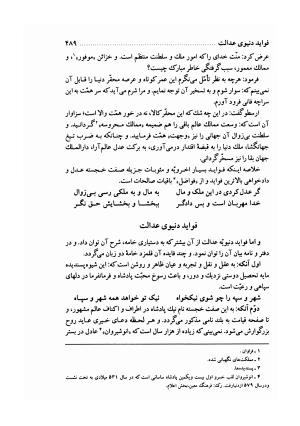 فواید دنیوی عدالت ۴۸۹
عرض کرد: منّت خدای را که امور ملک و سلطنت منتظم است. و خزائن «موفور»۱، و
ممالک معمور، سبب گرفتگی خاطر مبارک چیست؟
فرمود: هرچه به نظر تأمّل می‌نگرم این عمر کوتاه و عرصه محقّر دنیا را قابل آن
نمی‌بینم که: سوار شوم و به تسخیر آن توجه نمایم. و مرا شرم می‌آید که سر همت به این
سراچه فانی فرود آورم.
ارسطو گفت: در این چه شک که این محقّر کالا، نه در خور همّت والا است؛ سزاوار
آن است که: وسعت ممالک عالم باقی را هم ضمیمه «ممالک محروسه»۲ گردانید. و
سلطنت بی‌زوال آن جهانی را نیز «وجهت» همّت فرمایید. و چنانکه به ضرب تیغ
جهانگشا، ملک دنیا را به قبضهٔ اقتدار درمی‌آوری، به برکت عدل عالم‌آرا، دارالملک
جهان بقا را نیز مسخّر گردانی.
خلاصه اینکه فواید بسیار اخرویّه و مثوبات جزیله صفت خجسته عدل و
دادخواهی بالاترین فواید و از «فواضل»۳ باقیات صالحات است.
گر عدل کردی در این ملک و مال به مال و به ملکی رسی بی‌زوال
خدا مهربان است و بس دادگر ببخشا و بخشایش حق نگر
فواید دنیوی عدالت
و اما فواید دنیویّه عدالت از آن بیشتر که به دستیاری خامه، شرح آن توان داد. و در
دفتر و نامه بیان آن را توان نمود. و چند فایده آن قلمزد می‌گردد:
اول آنکه: به عقل و نقل و تجربه و عیان ظاهر و روشن است که: این شیوه پسندیده
مایه تحصیل دوستی نزدیک و دور، و باعث رسوخ محبت پادشاه و فرمانفرما در دلهای
سپاهی و رعیّت است.
شهر و سپه را چو شوی نیکخواه نیک تو خواهد همه شهر و سپاه
دوم آنکه: به این صفت خجسته نام نیک پادشاه در اطراف و اکناف عالم مشهور، و
تا صفحه قیامت به بلند نامی مذکور می‌گردد. و هر لحظه دعای خیری عاید روح
بزرگوارش می‌شود. نمی‌بینی که زیاده از هزار سال است که «انوشیروان»۴ عادل در بستر
۱ ـ فراوان.
۲ ـ مملکت‌های نگهبانی شده.
۳ ـ پسندیده‌ها.
۴ ـ انوشیروان لقب خسرو اول بیست ویکمین پادشاه ساسانی است که در سال ۵۳۱ میلادی به تخت نشست
و در سال ۵۷۹ از دنیا رفت. رک: فرهنگ معین، بخش اعلام.